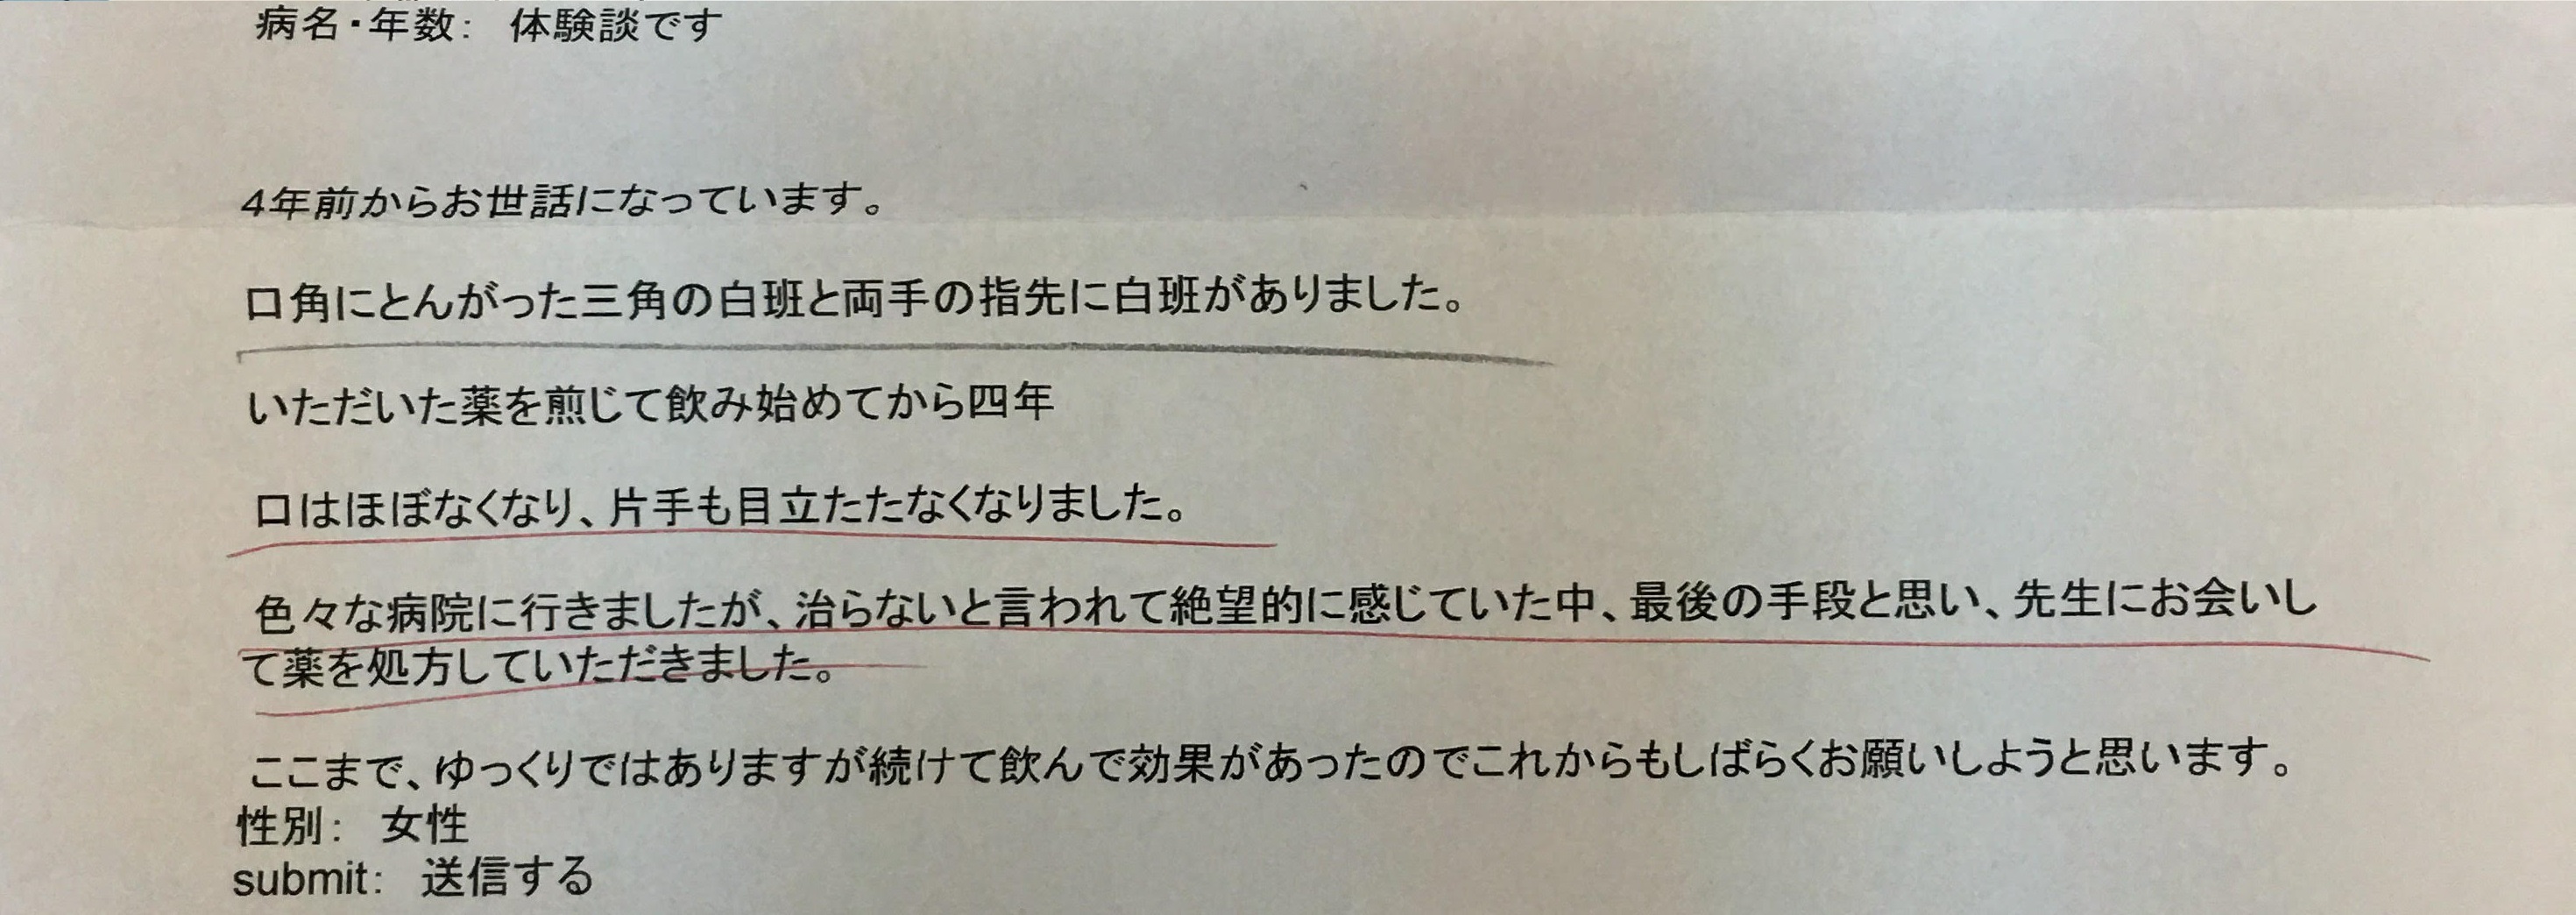 病名・年数： 体験談です
4年前からお世話になっています。
口角にとんがった三角の白班と両手の指先に白班がありました。
いただいた薬を煎じて飲み始めてから四年
口はほぼなくなり、片手も目立たたなくなりました。
色々な病院に行きましたが、治らないと言われて絶望的に感じていた中、最後の手段と思い、先生にお会いし
て薬を処方していただきました。
ここまで、ゆっくりではありますが続けて飲んで効果があったのでこれからもしばらくお願いしようと思います。
性別： 女性
submit： 送信する